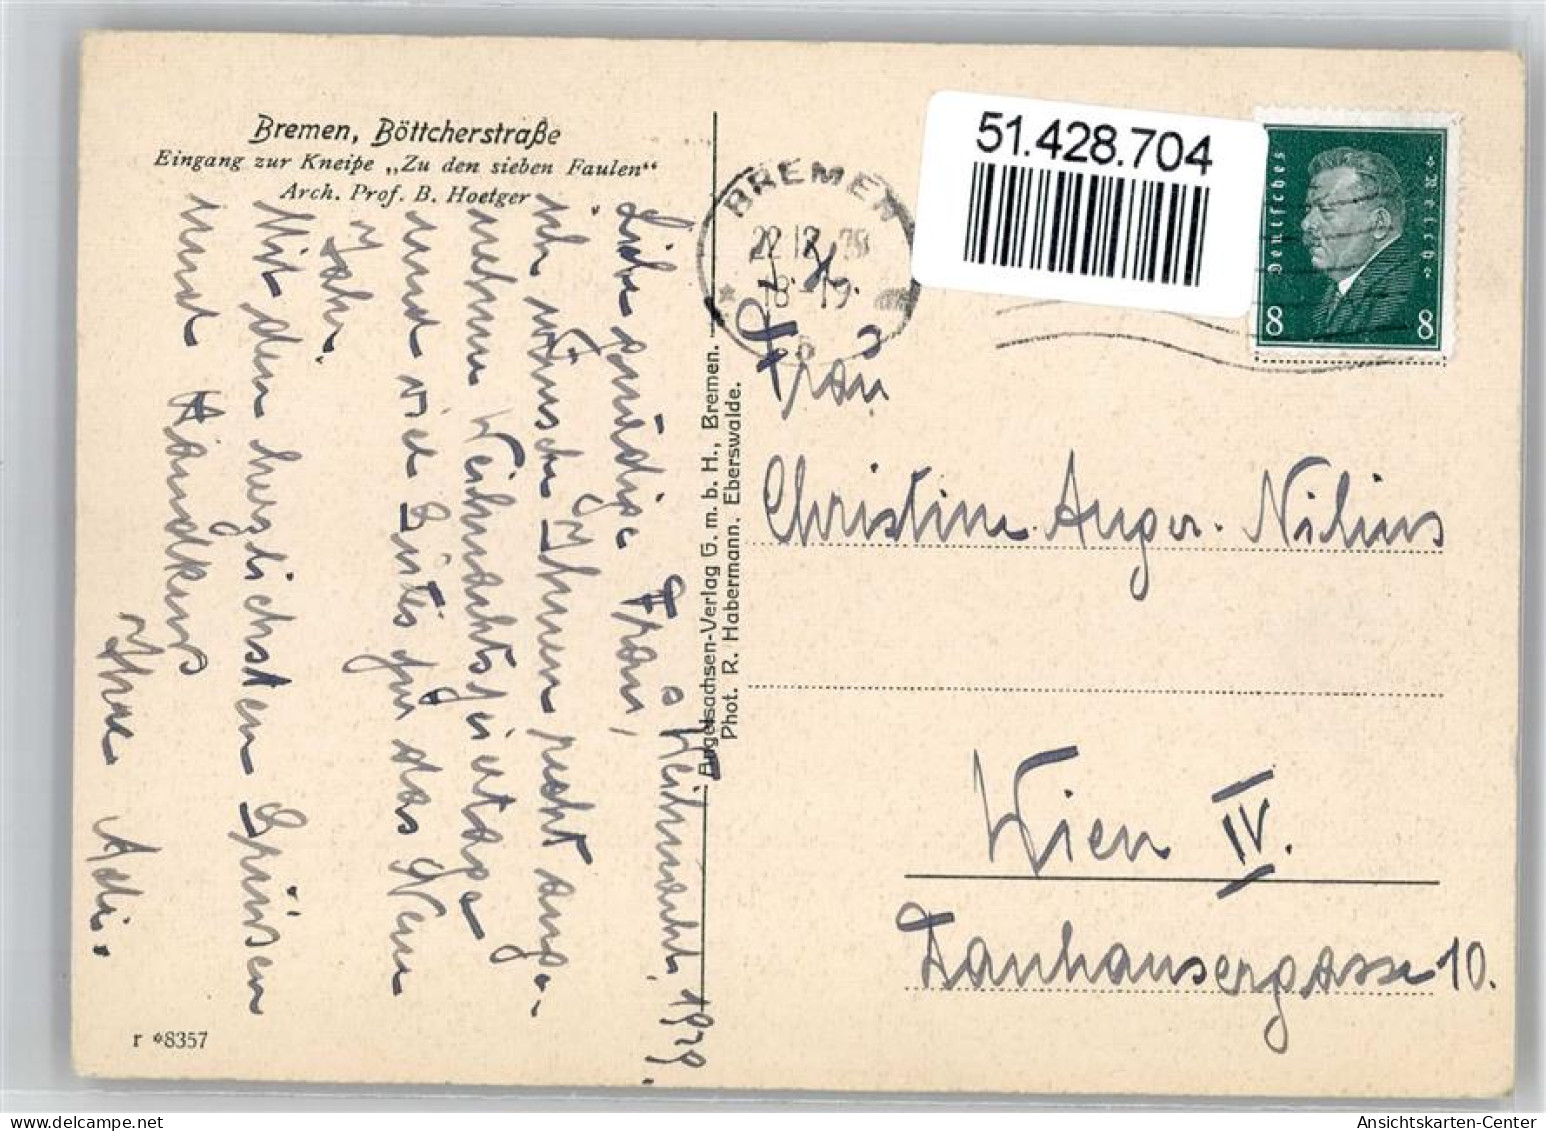 Bremen, Böttcherstraße
Eingang zur Kneipe „Zu den sieben Faulen“
Arch. Prof. B. Hoetger
Weihnacht, 1929.
Liebe gnädige Frau,
ich wünsche Ihnen recht ange-
nehme Weihnachtsfeiertage
und viel Gutes für das Neue
Jahr.
Mit den herzlichsten Grüssen
und Händekuss
Ihre Adi.
r *8357
Angelsachsen-Verlag G. m. b. H., Bremen.
Phot. R. Habermann. Eberswalde.
BREMEN
22 12 29
18-19
51.428.704
Deutsches Reich
8 8
Frau
Christine Auger-Nilius
Wien IV.
Tanhausergasse 10.
Ansichtskarten-Center